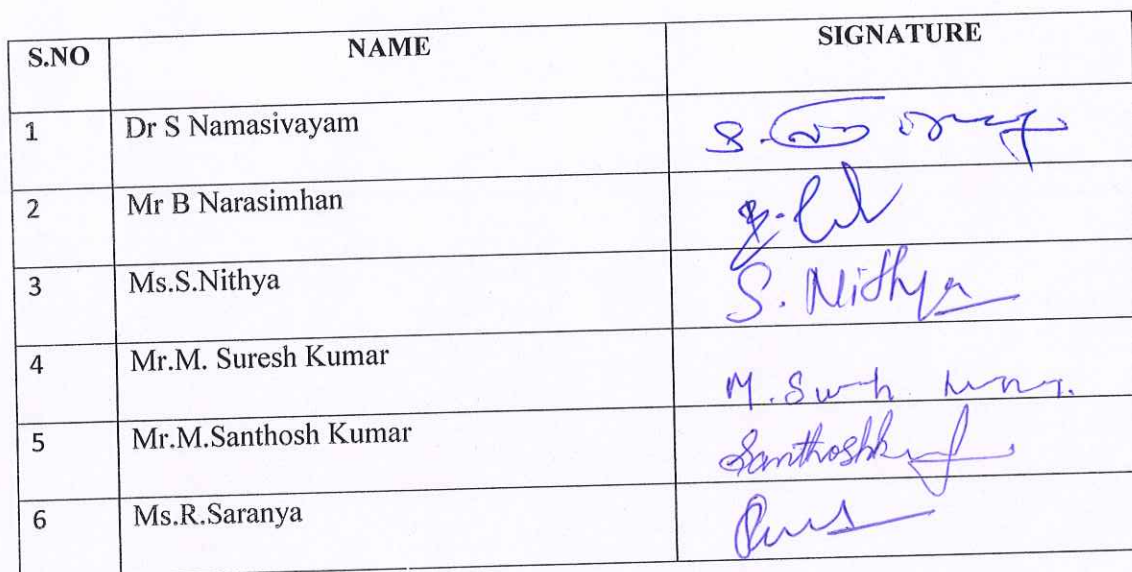 S.NO NAME SIGNATURE
1 Dr S Namasivayam S.
2 Mr B Narasimhan
3 Ms.S.Nithya S. Nithya
4 Mr.M. Suresh Kumar M. Suresh Kumar
5 Mr.M.Santhosh Kumar Santhoshk
6 Ms.R.Saranya